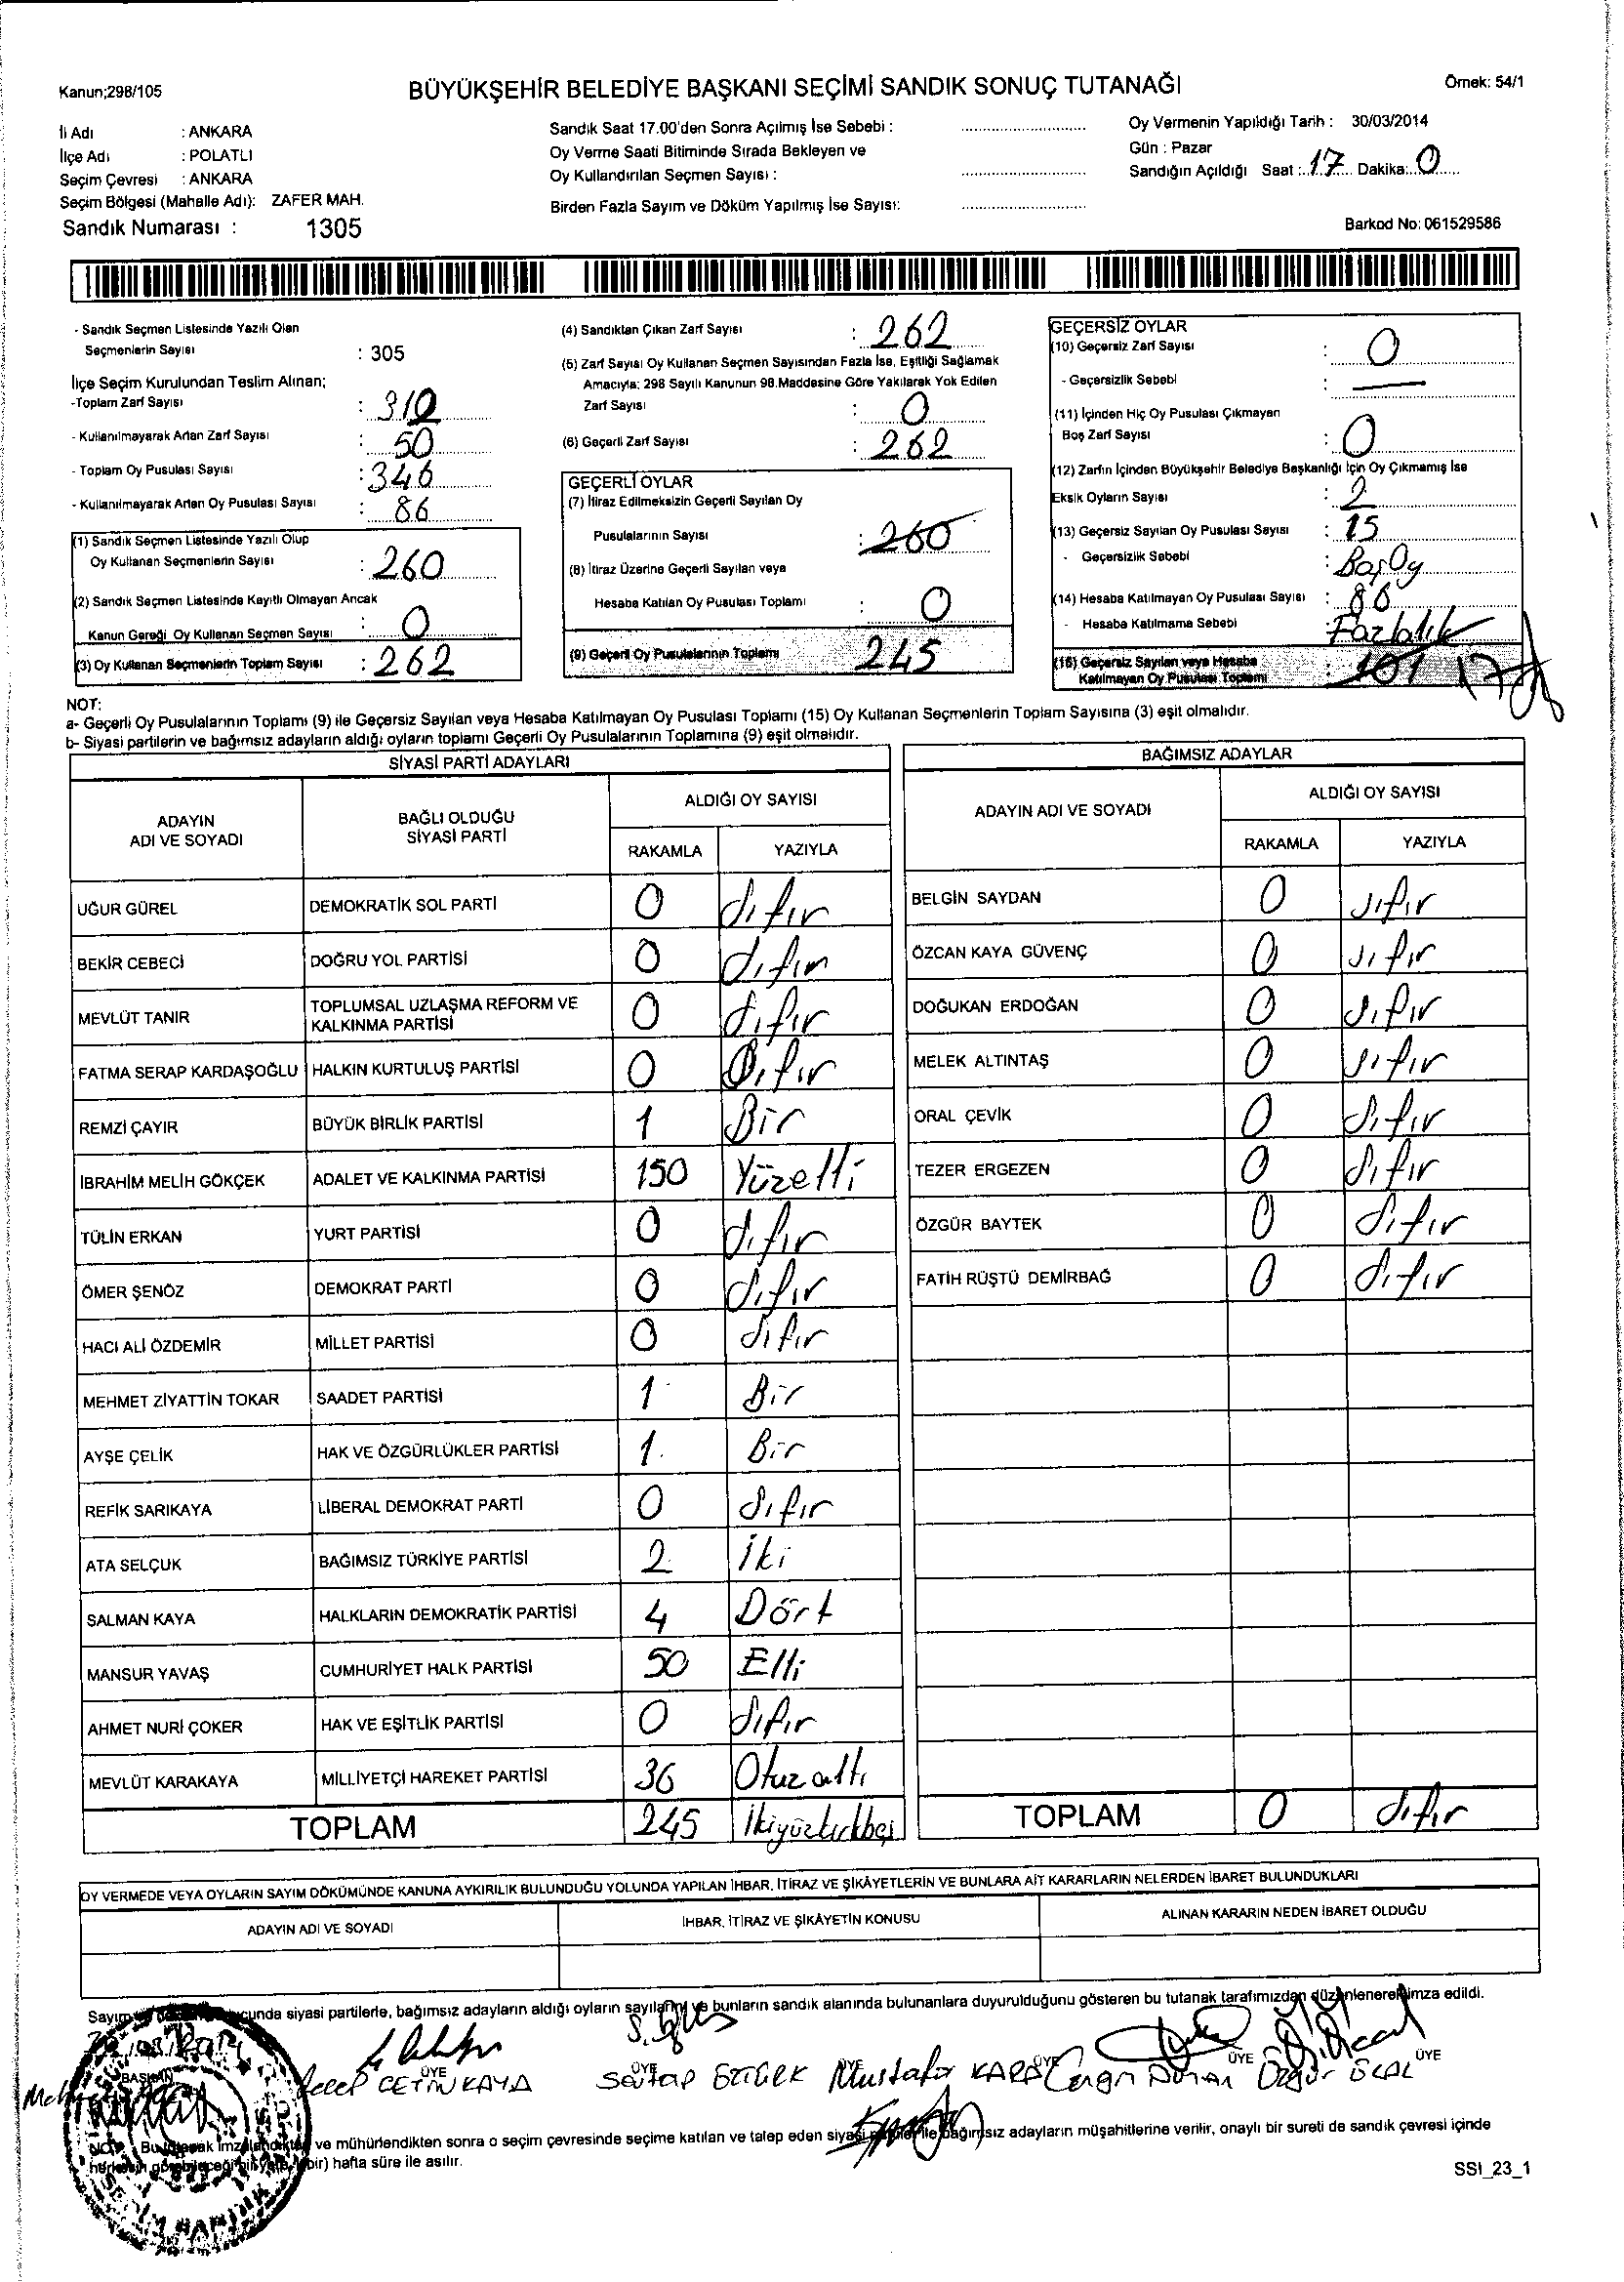 Kanun;298/105
BÜYÜKŞEHİR BELEDİYE BAŞKANI SEÇİMİ SANDIK SONUÇ TUTANAĞI
Örnek: 54/1
İli Adı : ANKARA
İlçe Adı : POLATLI
Seçim Çevresi : ANKARA
Seçim Bölgesi (Mahalle Adı): ZAFER MAH.
Sandık Numarası : 1305
Sandık Saat 17.00'den Sonra Açılmış İse Sebebi :
Oy Verme Saati Bitiminde Sırada Bekleyen ve
Oy Kullandırılan Seçmen Sayısı :
Birden Fazla Sayım ve Döküm Yapılmış İse Sayısı:
Oy Vermenin Yapıldığı Tarih : 30/03/2014
Gün : Pazar
Sandığın Açıldığı Saat : 17 Dakika: 0
Barkod No: 061529586
- Sandık Seçmen Listesinde Yazılı Olan
Seçmenlerin Sayısı : 305
İlçe Seçim Kurulundan Teslim Alınan;
-Toplam Zarf Sayısı : 310
- Kullanılmayarak Artan Zarf Sayısı : 50
- Toplam Oy Pusulası Sayısı : 346
- Kullanılmayarak Artan Oy Pusulası Sayısı : 86
(1) Sandık Seçmen Listesinde Yazılı Olup
Oy Kullanan Seçmenlerin Sayısı : 260
(2) Sandık Seçmen Listesinde Kayıtlı Olmayan Ancak
Kanun Gereği Oy Kullanan Seçmen Sayısı : 0
(3) Oy Kullanan Seçmenlerin Toplam Sayısı : 262
(4) Sandıktan Çıkan Zarf Sayısı : 262
(5) Zarf Sayısı Oy Kullanan Seçmen Sayısından Fazla İse, Eşitliği Sağlamak
Amacıyla; 298 Sayılı Kanunun 98.Maddesine Göre Yakılarak Yok Edilen
Zarf Sayısı : 0
(6) Geçerli Zarf Sayısı : 262
GEÇERLİ OYLAR
(7) İtiraz Edilmeksizin Geçerli Sayılan Oy
Pusulalarının Sayısı : 260
(8) İtiraz Üzerine Geçerli Sayılan veya
Hesaba Katılan Oy Pusulası Toplamı : 0
(9) Geçerli Oy Pusulalarının Toplamı 245
GEÇERSİZ OYLAR
(10) Geçersiz Zarf Sayısı : 0
- Geçersizlik Sebebi : —
(11) İçinden Hiç Oy Pusulası Çıkmayan
Boş Zarf Sayısı : 0
(12) Zarfın İçinden Büyükşehir Belediye Başkanlığı İçin Oy Çıkmamış İse
Eksik Oyların Sayısı : 2
(13) Geçersiz Sayılan Oy Pusulası Sayısı : 15
- Geçersizlik Sebebi : Boş Oy
(14) Hesaba Katılmayan Oy Pusulası Sayısı : 86
- Hesaba Katılmama Sebebi : Fazlalık
(15) Geçersiz Sayılan veya Hesaba
Katılmayan Oy Pusulası Toplamı : 101 17
NOT:
a- Geçerli Oy Pusulalarının Toplamı (9) ile Geçersiz Sayılan veya Hesaba Katılmayan Oy Pusulası Toplamı (15) Oy Kullanan Seçmenlerin Toplam Sayısına (3) eşit olmalıdır.
b- Siyasi partilerin ve bağımsız adayların aldığı oyların toplamı Geçerli Oy Pusulalarının Toplamına (9) eşit olmalıdır.
SİYASİ PARTİ ADAYLARI
ADAYIN ADI VE SOYADI
BAĞLI OLDUĞU SİYASİ PARTİ
ALDIĞI OY SAYISI
RAKAMLA YAZIYLA
UĞUR GÜREL DEMOKRATİK SOL PARTİ 0 Sıfır
BEKİR CEBECİ DOĞRU YOL PARTİSİ 0 Sıfır
MEVLÜT TANIR TOPLUMSAL UZLAŞMA REFORM VE KALKINMA PARTİSİ 0 Sıfır
FATMA SERAP KARDAŞOĞLU HALKIN KURTULUŞ PARTİSİ 0 Sıfır
REMZİ ÇAYIR BÜYÜK BİRLİK PARTİSİ 1 Bir
İBRAHİM MELİH GÖKÇEK ADALET VE KALKINMA PARTİSİ 150 Yüzelli
TÜLİN ERKAN YURT PARTİSİ 0 Sıfır
ÖMER ŞENÖZ DEMOKRAT PARTİ 0 Sıfır
HACI ALİ ÖZDEMİR MİLLET PARTİSİ 0 Sıfır
MEHMET ZİYATTİN TOKAR SAADET PARTİSİ 1 Bir
AYŞE ÇELİK HAK VE ÖZGÜRLÜKLER PARTİSİ 1 Bir
REFİK SARIKAYA LİBERAL DEMOKRAT PARTİ 0 Sıfır
ATA SELÇUK BAĞIMSIZ TÜRKİYE PARTİSİ 2 İki
SALMAN KAYA HALKLARIN DEMOKRATİK PARTİSİ 4 Dört
MANSUR YAVAŞ CUMHURİYET HALK PARTİSİ 50 Elli
AHMET NURİ ÇOKER HAK VE EŞİTLİK PARTİSİ 0 Sıfır
MEVLÜT KARAKAYA MİLLİYETÇİ HAREKET PARTİSİ 36 Otuz altı
TOPLAM 245 İkiyüzkırkbeş
BAĞIMSIZ ADAYLAR
ADAYIN ADI VE SOYADI
ALDIĞI OY SAYISI
RAKAMLA YAZIYLA
BELGİN SAYDAN 0 Sıfır
ÖZCAN KAYA GÜVENÇ 0 Sıfır
DOĞUKAN ERDOĞAN 0 Sıfır
MELEK ALTINTAŞ 0 Sıfır
ORAL ÇEVİK 0 Sıfır
TEZER ERGEZEN 0 Sıfır
ÖZGÜR BAYTEK 0 Sıfır
FATİH RÜŞTÜ DEMİRBAĞ 0 Sıfır
TOPLAM 0 Sıfır
OY VERMEDE VEYA OYLARIN SAYIM DÖKÜMÜNDE KANUNA AYKIRILIK BULUNDUĞU YOLUNDA YAPILAN İHBAR, İTİRAZ VE ŞİKÂYETLERİN VE BUNLARA AİT KARARLARIN NELERDEN İBARET BULUNDUKLARI
ADAYIN ADI VE SOYADI
İHBAR, İTİRAZ VE ŞİKÂYETİN KONUSU
ALINAN KARARIN NEDEN İBARET OLDUĞU
Sayım siyasi partilerle, bağımsız adayların aldığı oyların sayılarını ve bunların sandık alanında bulunanlara duyurulduğunu gösteren bu tutanak tarafımızdan düzenlenerek imza edildi.
BAŞKAN ÜYE ÜYE ÜYE ÜYE ÜYE
Recep ÇETİNKAYA Mustafa KARA Özgür
NOT: Bu tutanak imzalandıktan ve mühürlendikten sonra o seçim çevresinde seçime katılan ve talep eden siyasi partiler ile bağımsız adayların müşahitlerine verilir, onaylı bir sureti de sandık çevresi içinde
herkesin görebileceği bir yere (bir) hafta süre ile asılır.
SSI_23_1